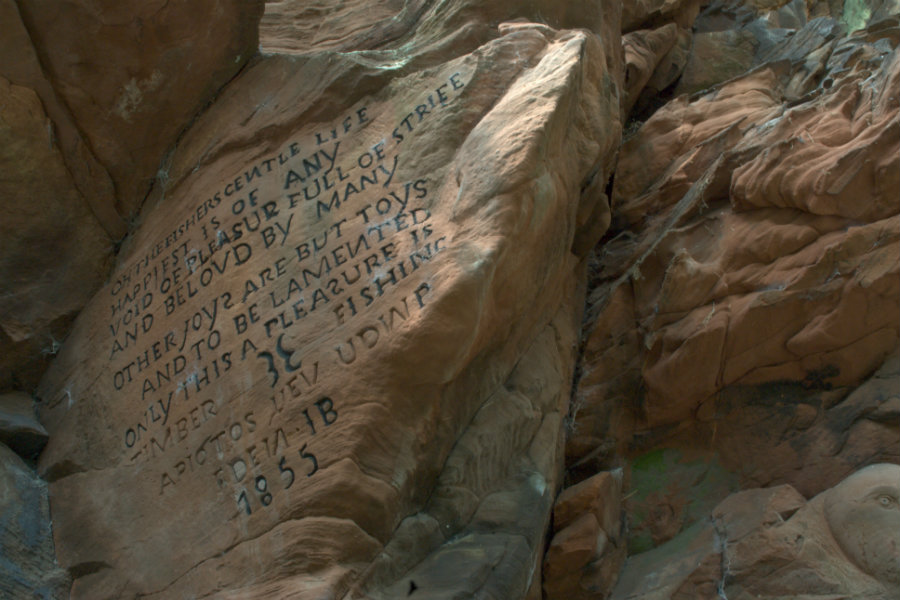 OH THE FISHERS GENTLE LIFE
HAPPIEST IS OF ANY
VOID OF PLEASUR FULL OF STRIFE
AND BELOVD BY MANY
OTHER JOYS ARE BUT TOYS
AND TO BE LAMENTED
ONLY THIS A PLEASURE IS
FISHING
TIMBER
UDWP
EDEN IB
1855